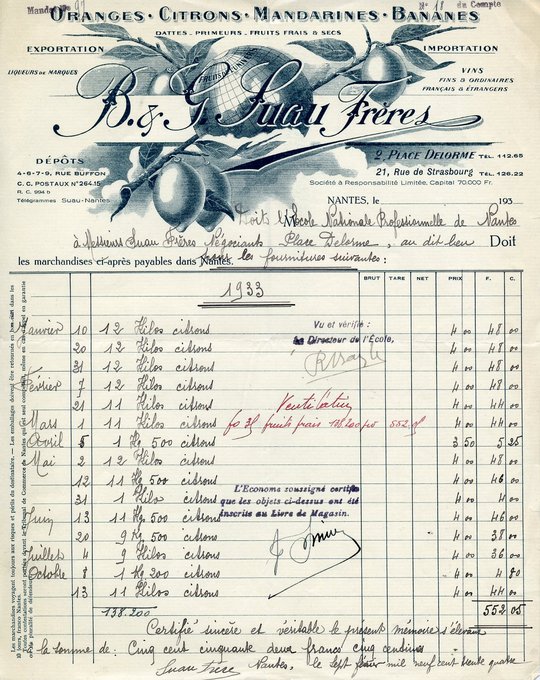 Mandat No 97
No 18 du Compte
Oranges · Citrons · Mandarines · Bananes
Dattes - Primeurs - Fruits Frais & Secs
Exportation
Importation
Liqueurs de Marques
Vins
Fins & Ordinaires
Français & Étrangers
B. & G. Suau Frères
Dépôts
4-6-7-9, Rue Buffon
C. C. Postaux No 264.15
R. C. 994 b
Télégrammes Suau-Nantes
2, Place Delorme Tél. 112.65
21, Rue de Strasbourg Tél. 126.22
Société à Responsabilité Limitée, Capital 70.000 Fr.
Nantes, le 193
Doit l'École Nationale Professionnelle de Nantes
à Messieurs Suau Frères Négociants Place Delorme, au dit lieu Doit
les marchandises ci-après payables dans Nantes. pour les fournitures suivantes :
BRUT TARE NET PRIX F. C.
1933
Janvier 10 12 Kilos citrons 4 00 48 00
20 12 Kilos citrons 4 00 48 00
31 12 Kilos citrons 4 00 48 00
Février 7 12 Kilos citrons 4 00 48 00
21 11 Kilos citrons 4 00 44 00
Mars 1 11 Kilos citrons 4 00 44 00
Avril 5 1 Kg 500 citrons 3 50 5 25
Mai 2 12 Kilos citrons 4 00 48 00
12 11 Kg 500 citrons 4 00 46 00
31 1 Kilo citrons 4 00 4 00
Juin 13 11 Kg 500 citrons 4 00 46 00
20 9 Kg 500 citrons 4 00 38 00
Juillet 4 9 Kilos citrons 4 00 36 00
Octobre 8 1 Kg 200 citrons 4 00 4 80
13 11 Kilos citrons 4 00 44 00
138.200
552 05
Vu et vérifié :
Le Directeur de l'École,
Ventilation
fruits frais 552.05
L'Économe soussigné certifie
que les objets ci-dessus ont été
inscrits au Livre de Magasin.
Certifié sincère et véritable le présent mémoire s'élevant
à la somme de : Cinq cent cinquante deux francs cinq centimes
Suau Frères Nantes, le sept mil neuf cent trente quatre
Les marchandises voyagent toujours aux risques et périls du destinataire. — Les emballages doivent être retournés en bon état dans les
10 jours, franco Nantes.